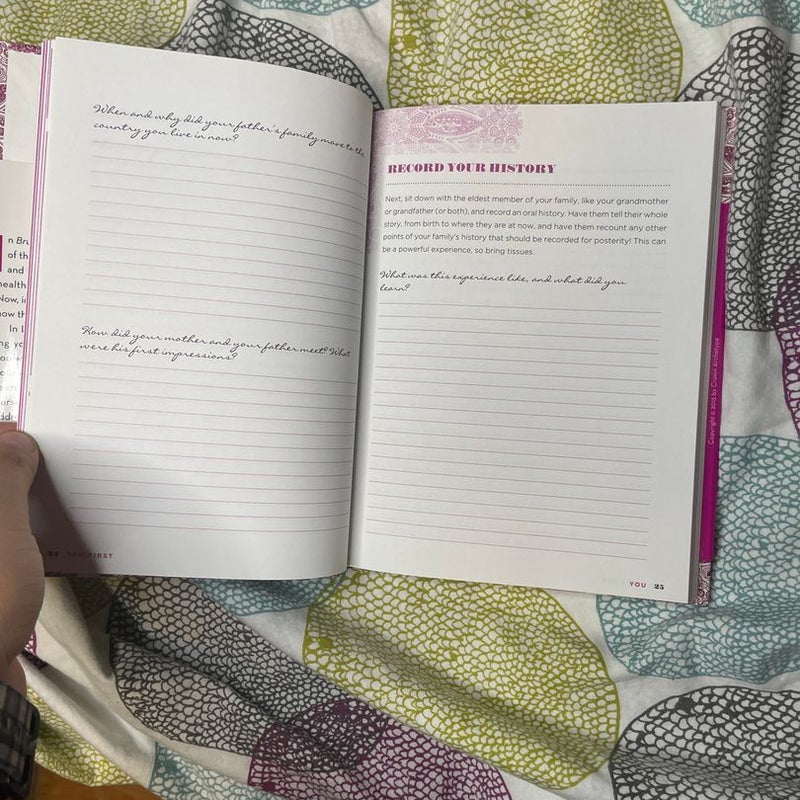 When and why did your father's family move to the
country you live in now?
How did your mother and your father meet? What
were his first impressions?
YOU FIRST
RECORD YOUR HISTORY
Next, sit down with the eldest member of your family, like your grandmother
or grandfather (or both), and record an oral history. Have them tell their whole
story, from birth to where they are at now, and have them recount any other
points of your family's history that should be recorded for posterity! This can
be a powerful experience, so bring tissues.
What was this experience like, and what did you
learn?
YOU 25
of th
and
Now, i
In L
Copyright © 2015 by Crown Archetype